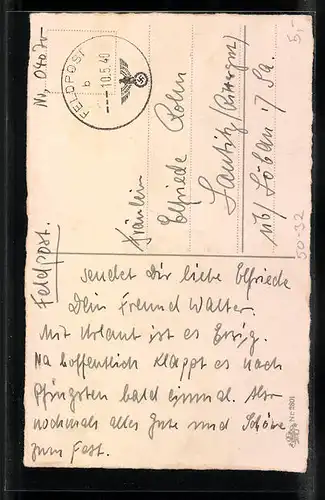 FELDPOST
b
--- 10.5.40
Fräulein
Elfriede Rohn
Lautitz (Rittergut)
üb/ Löbau i/ Sa.
5,-
50-32
Feldpost.
sendet Dir liebe Elfriede
Dein Freund Walter.
Mit Urlaub ist es Essig.
Na hoffentlich klappt es nach
Pfingsten bald einmal. Also
nochmals alles Gute und Schöne
zum Fest.